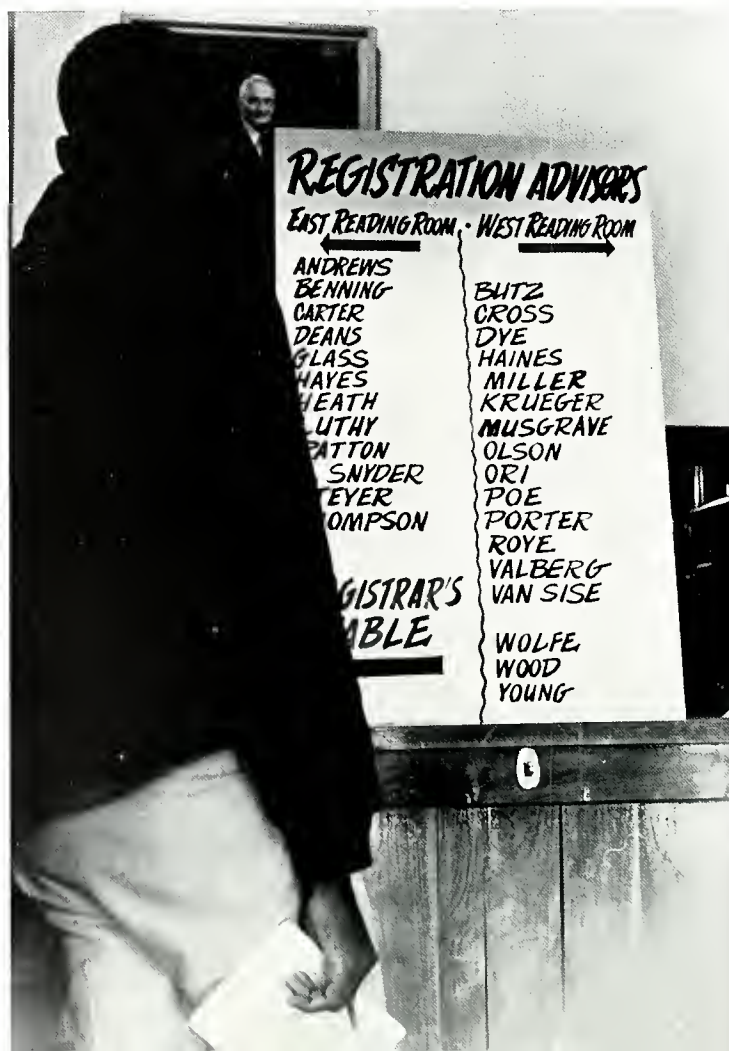 REGISTRATION ADVISORS
EAST READING ROOM • WEST READING ROOM
ANDREWS
BENNING
CARTER
DEANS
GLASS
HAYES
HEATH
LUTHY
PATTON
SNYDER
TEYER
OMPSON
GISTRAR'S
ABLE
BUTZ
CROSS
DYE
HAINES
MILLER
KRUEGER
MUSGRAVE
OLSON
ORI
POE
PORTER
ROYE
VALBERG
VAN SISE
WOLFE
WOOD
YOUNG